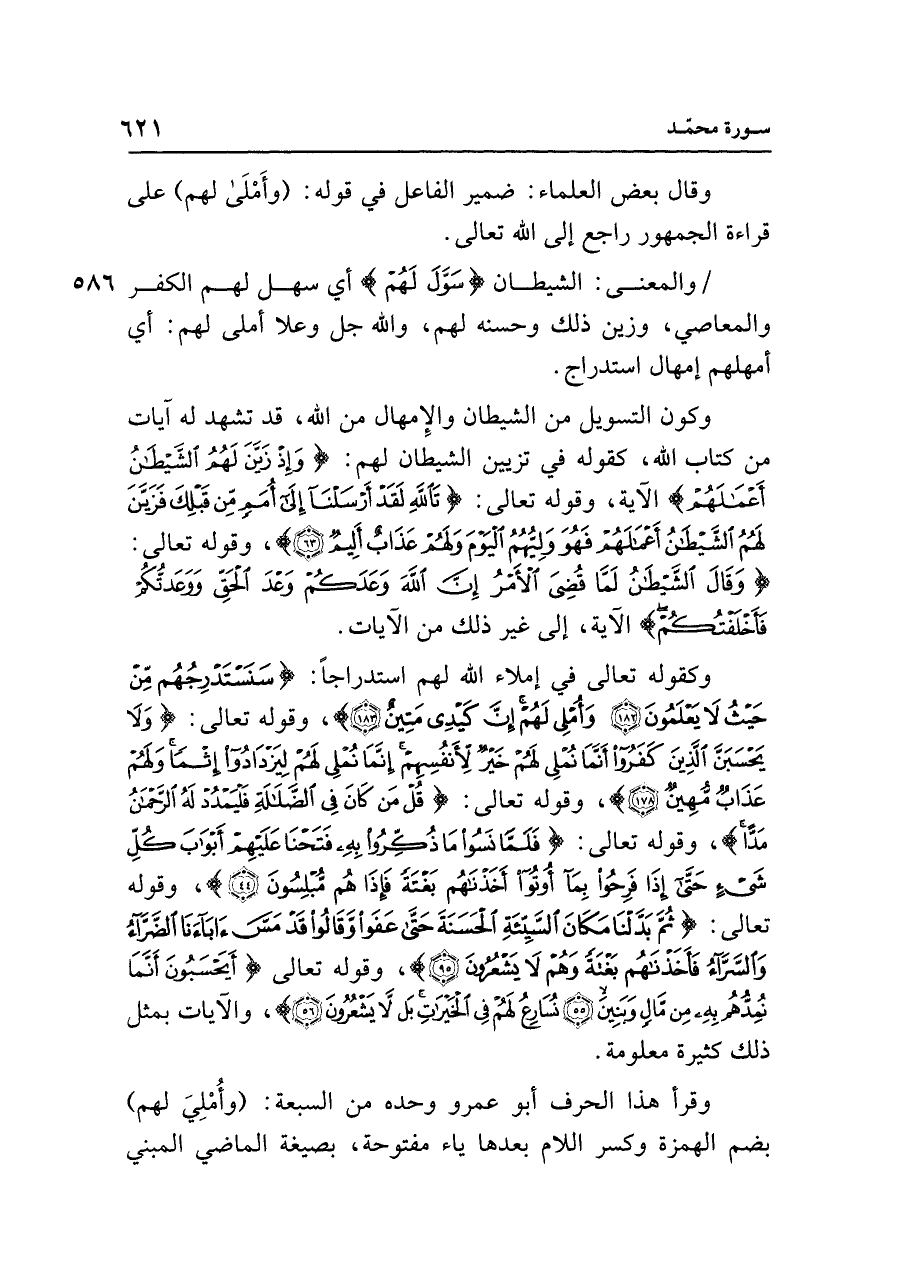 سورة محمّد ٦٢١
وقال بعض العلماء: ضمير الفاعل في قوله: (وأَمْلَىٰ لهم) على
قراءة الجمهور راجع إلى الله تعالى.
/ والمعنى: الشيطان ﴿سَوَّلَ لَهُمْ﴾ أي سهل لهم الكفر ٥٨٦
والمعاصي، وزين ذلك وحسنه لهم، والله جل وعلا أملى لهم: أي
أمهلهم إمهال استدراج.
وكون التسويل من الشيطان والإِمهال من الله، قد تشهد له آيات
من كتاب الله، كقوله في تزيين الشيطان لهم: ﴿ وَإِذْ زَيَّنَ لَهُمُ ٱلشَّيْطَٰنُ
أَعْمَٰلَهُمْ﴾ الآية، وقوله تعالى: ﴿ تَٱللَّهِ لَقَدْ أَرْسَلْنَآ إِلَىٰٓ أُمَمٍ مِّن قَبْلِكَ فَزَيَّنَ
لَهُمُ ٱلشَّيْطَٰنُ أَعْمَٰلَهُمْ فَهُوَ وَلِيُّهُمُ ٱلْيَوْمَ وَلَهُمْ عَذَابٌ أَلِيمٌ ٦٣﴾، وقوله تعالى:
﴿ وَقَالَ ٱلشَّيْطَٰنُ لَمَّا قُضِىَ ٱلْأَمْرُ إِنَّ ٱللَّهَ وَعَدَكُمْ وَعْدَ ٱلْحَقِّ وَوَعَدتُّكُمْ
فَأَخْلَفْتُكُمْ ۖ﴾ الآية، إلى غير ذلك من الآيات.
وكقوله تعالى في إملاء الله لهم استدراجاً: ﴿ سَنَسْتَدْرِجُهُم مِّنْ
حَيْثُ لَا يَعْلَمُونَ ١٨٢ وَأُمْلِى لَهُمْ ۚ إِنَّ كَيْدِى مَتِينٌ ١٨٣﴾، وقوله تعالى: ﴿ وَلَا
يَحْسَبَنَّ ٱلَّذِينَ كَفَرُوٓا۟ أَنَّمَا نُمْلِى لَهُمْ خَيْرٌ لِّأَنفُسِهِمْ ۚ إِنَّمَا نُمْلِى لَهُمْ لِيَزْدَادُوٓا۟ إِثْمًا ۚ وَلَهُمْ
عَذَابٌ مُّهِينٌ ١٧٨﴾، وقوله تعالى: ﴿ قُلْ مَن كَانَ فِى ٱلضَّلَٰلَةِ فَلْيَمْدُدْ لَهُ ٱلرَّحْمَٰنُ
مَدًّا ۚ﴾، وقوله تعالى: ﴿ فَلَمَّا نَسُوا۟ مَا ذُكِّرُوا۟ بِهِۦ فَتَحْنَا عَلَيْهِمْ أَبْوَٰبَ كُلِّ
شَىْءٍ حَتَّىٰٓ إِذَا فَرِحُوا۟ بِمَآ أُوتُوٓا۟ أَخَذْنَٰهُم بَغْتَةً فَإِذَا هُم مُّبْلِسُونَ ٤٤﴾، وقوله
تعالى: ﴿ ثُمَّ بَدَّلْنَا مَكَانَ ٱلسَّيِّئَةِ ٱلْحَسَنَةَ حَتَّىٰ عَفَوا۟ وَّقَالُوا۟ قَدْ مَسَّ ءَابَآءَنَا ٱلضَّرَّآءُ
وَٱلسَّرَّآءُ فَأَخَذْنَٰهُم بَغْتَةً وَهُمْ لَا يَشْعُرُونَ ٩٥﴾، وقوله تعالى ﴿ أَيَحْسَبُونَ أَنَّمَا
نُمِدُّهُم بِهِۦ مِن مَّالٍ وَبَنِينَ ۙ ٥٥ نُسَارِعُ لَهُمْ فِى ٱلْخَيْرَٰتِ ۚ بَل لَّا يَشْعُرُونَ ٥٦﴾، والآيات بمثل
ذلك كثيرة معلومة.
وقرأ هذا الحرف أبو عمرو وحده من السبعة: (وأُمْلِيَ لهم)
بضم الهمزة وكسر اللام بعدها ياء مفتوحة، بصيغة الماضي المبني